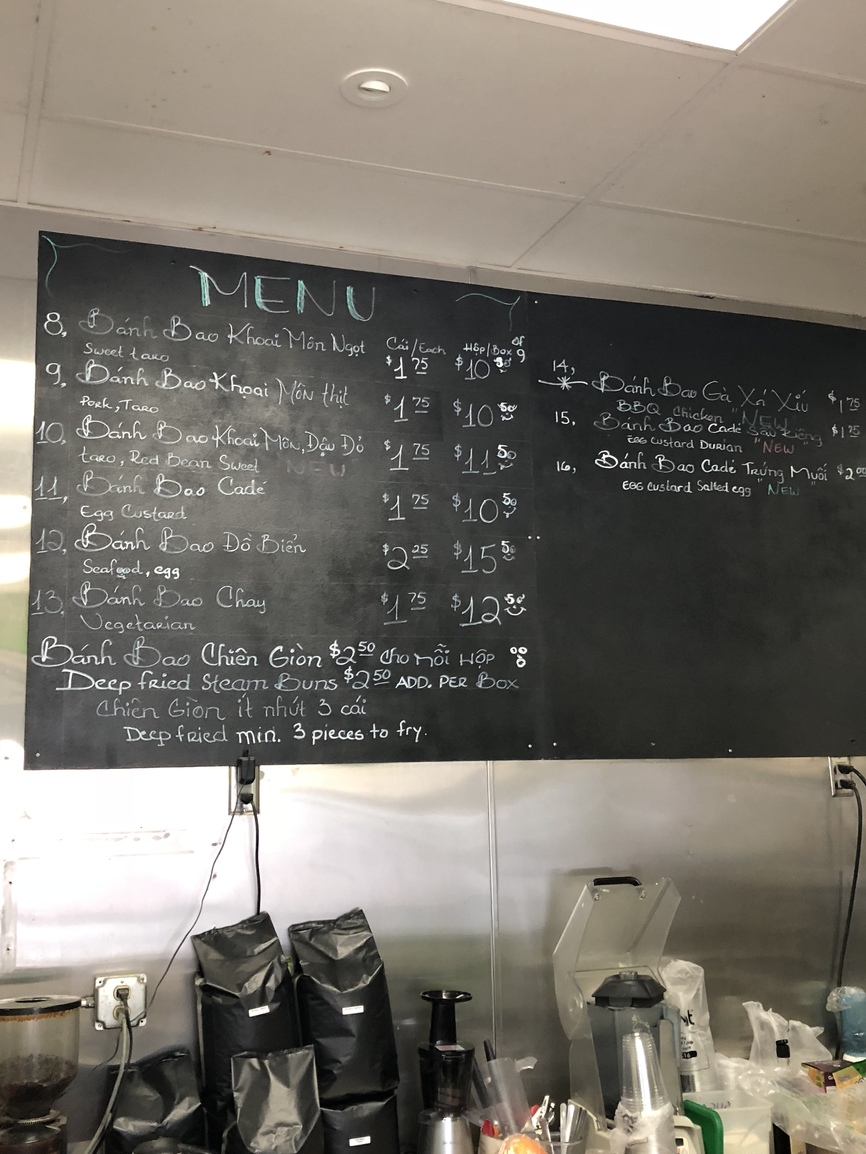 MENU
Cái/Each Hộp/Box of 9
8, Bánh Bao Khoai Môn Ngọt $1 75 $10 50
Sweet taro
9, Bánh Bao Khoai Môn thịt $1 75 $10 50
Pork, Taro
10, Bánh Bao Khoai Môn, Đậu Đỏ $1 75 $11 50
taro, Red Bean Sweet NEW
11, Bánh Bao Cadé $1 75 $10 50
Egg Custard
12, Bánh Bao Đồ Biển $2 25 $15 50
Seafood, egg
13, Bánh Bao Chay $1 75 $12 50
Vegetarian
Bánh Bao Chiên Giòn $2 50 cho mỗi Hộp
Deep fried Steam Buns $2 50 ADD. PER Box
Chiên Giòn ít nhứt 3 cái
Deep fried min. 3 pieces to fry.
14, Bánh Bao Gà Xá Xíu $1 75
BBQ Chicken "NEW"
15, Bánh Bao Cadé Sầu Riêng
Egg Custard Durian "NEW"
16, Bánh Bao Cadé Trứng Muối $2 00
Egg Custard Salted egg "NEW"